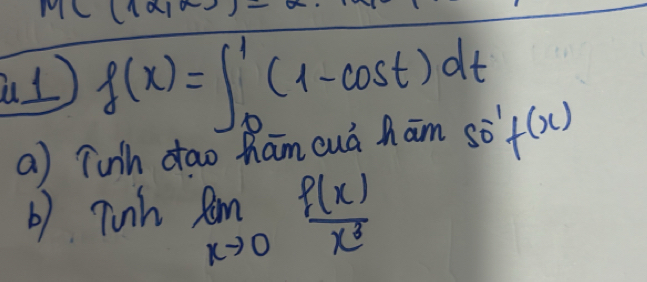 Câu 1) f(x) = ∫₀¹ (1 - cost) dt
a) Tính đạo hàm của hàm số f(x)
b) Tính lim x→0 f(x)/x³